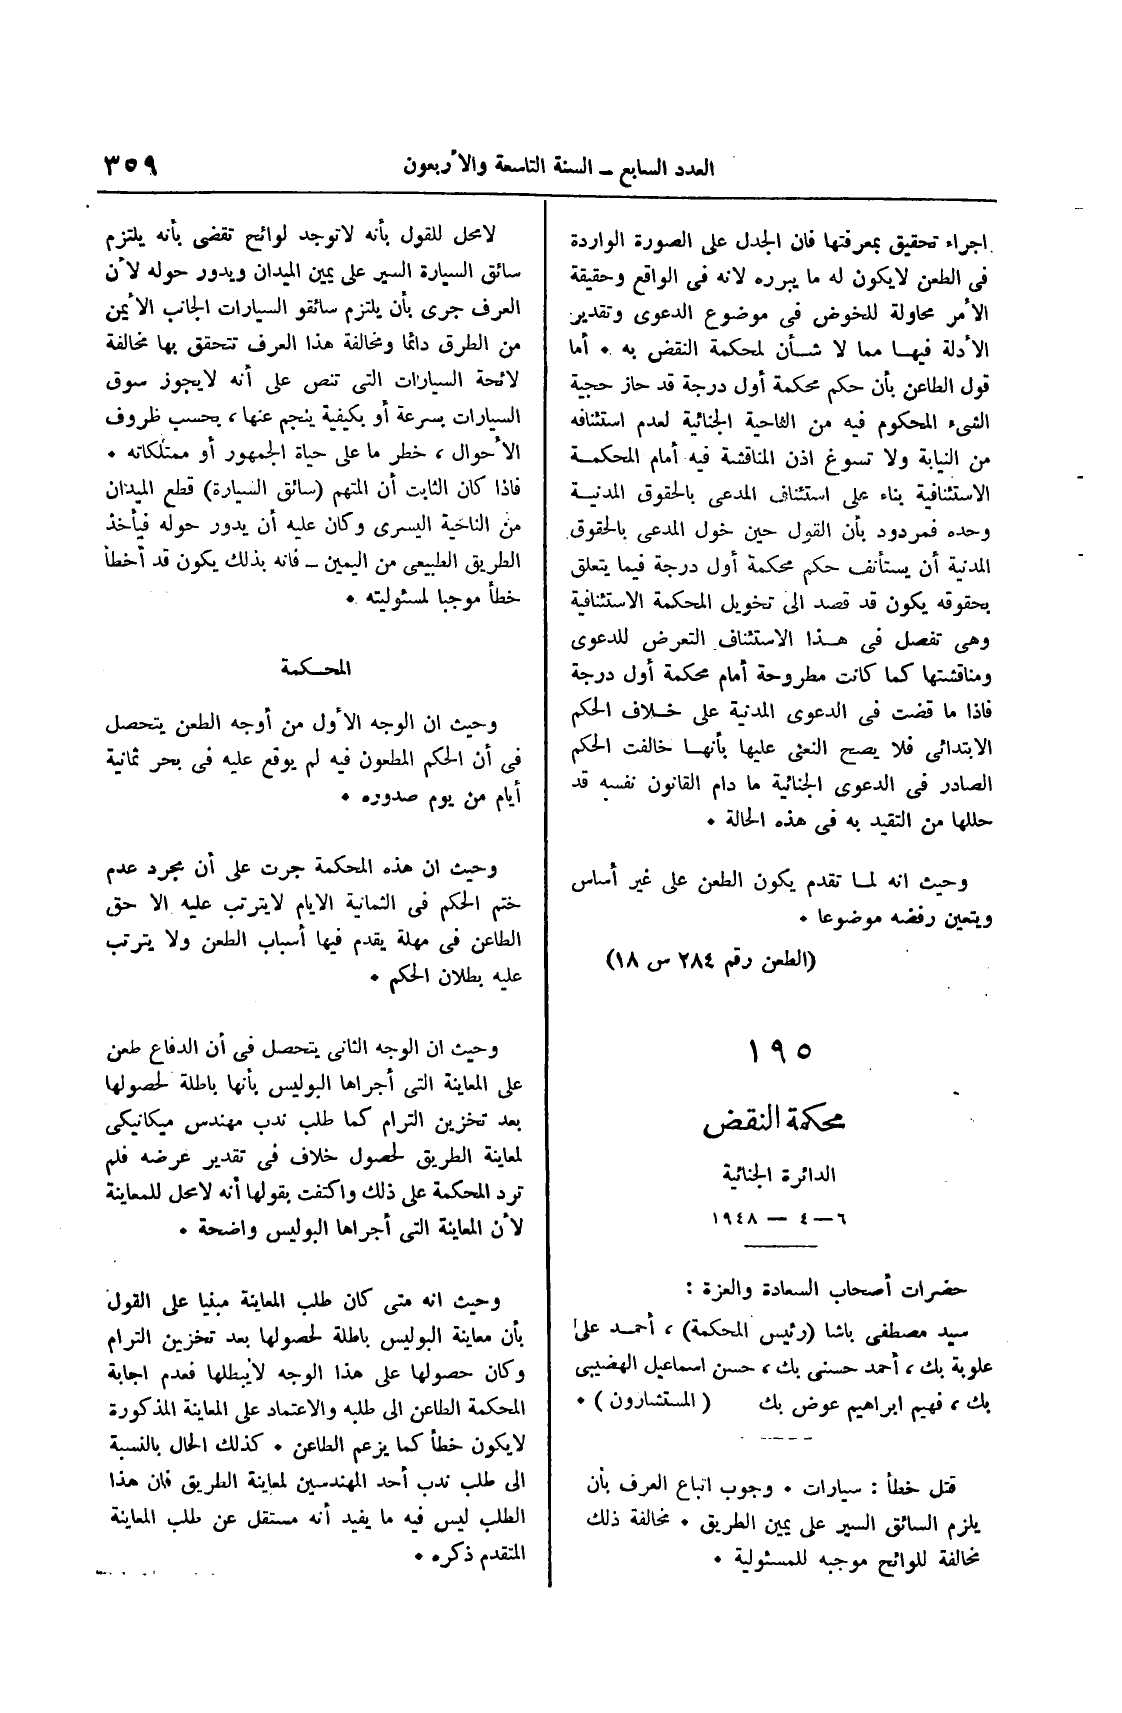 العدد السابع ــ السنة التاسعة والأربعون
٣٥٩
اجراء تحقيق بمعرفتها فان الجدل على الصورة الواردة
فى الطعن لايكون له ما يبرره لانه فى الواقع وحقيقة
الأمر محاولة للخوض فى موضوع الدعوى وتقدير
الأدلة فيهـا مما لا شـأن لمحكمة النقض به ٠ أما
قول الطاعن بأن حكم محكمة أول درجة قد حاز حجية
الشىء المحكوم فيه من الناحية الجنائية لعدم استئنافه
من النيابة ولا تسوغ اذن المناقشة فيه أمام المحكمـة
الاستئنافية بناء على استئناف المدعى بالحقوق المدنيـة
وحده فمردود بأن القول حين خول المدعى بالحقوق
المدنية أن يستأنف حكم محكمة أول درجة فيما يتعلق
بحقوقه يكون قد قصد الى تخويل المحكمة الاستئنافية
وهى تفصل فى هـذا الاستئناف التعرض للدعوى
ومناقشتها كما كانت مطروحة أمام محكمة أول درجة
فاذا ما قضت فى الدعوى المدنية على خـلاف الحكم
الابتدائى فلا يصح النعى عليها بأنهـا خالفت الحكم
الصادر فى الدعوى الجنائية ما دام القانون نفسه قد
حللها من التقيد به فى هذه الحالة ٠
وحيث انه لمـا تقدم يكون الطعن على غير أساس
ويتعين رفضه موضوعا ٠
(الطعن رقم ٢٨٤ س ١٨)
١٩٥
محكمة النقض
الدائرة الجنائية
٦ — ٤ — ١٩٤٨
حضرات أصحاب السعادة والعزة :
سيد مصطفى باشا (رئيس المحكمة) ، أحمـد على
علوبة بك ، أحمد حسنى بك ، حسن اسماعيل الهضيبى
بك ، فهيم ابراهيم عوض بك (المستشارون) ٠
قتل خطأ : سيارات ٠ وجوب اتباع العرف بأن
يلزم السائق السير على يمين الطريق ٠ مخالفة ذلك
مخالفة للوائح موجبه للمسئولية ٠
لامحل للقول بأنه لاتوجد لوائح تقضى بأنه يلتزم
سائق السيارة السير على يمين الميدان ويدور حوله لأن
العرف جرى بأن يلتزم سائقو السيارات الجانب الأيمن
من الطرق دائما ومخالفة هذا العرف تتحقق بها مخالفة
لائحة السيارات التى تنص على أنه لايجوز سوق
السيارات بسرعة أو بكيفية ينجم عنها ، بحسب ظروف
الأحوال ، خطر ما على حياة الجمهور أو ممتلكاته ٠
فاذا كان الثابت أن المتهم (سائق السيارة) قطع الميدان
من الناحية اليسرى وكان عليه أن يدور حوله فيأخذ
الطريق الطبيعى من اليمين ــ فانه بذلك يكون قد أخطأ
خطأ موجبا لمسئوليته ٠
المحـكمة
وحيث ان الوجه الأول من أوجه الطعن يتحصل
فى أن الحكم المطعون فيه لم يوقع عليه فى بحر ثمانية
أيام من يوم صدوره ٠
وحيث ان هذه المحكمة جرت على أن مجرد عدم
ختم الحكم فى الثمانية الايام لايترتب عليه الا حق
الطاعن فى مهلة يقدم فيها أسباب الطعن ولا يترتب
عليه بطلان الحكم ٠
وحيث ان الوجه الثانى يتحصل فى أن الدفاع طعن
على المعاينة التى أجراها البوليس بأنها باطلة لحصولها
بعد تخزين الترام كما طلب ندب مهندس ميكانيكى
لمعاينة الطريق لحصول خلاف فى تقدير عرضه فلم
ترد المحكمة على ذلك واكتفت بقولها أنه لامحل للمعاينة
لأن المعاينة التى أجراها البوليس واضحة ٠
وحيث انه متى كان طلب المعاينة مبنيا على القول
بأن معاينة البوليس باطلة لحصولها بعد تخزين الترام
وكان حصولها على هذا الوجه لايبطلها فعدم اجابة
المحكمة الطاعن الى طلبه والاعتماد على المعاينة المذكورة
لايكون خطأ كما يزعم الطاعن ٠ كذلك الحال بالنسبة
الى طلب ندب أحد المهندسين لمعاينة الطريق فان هذا
الطلب ليس فيه ما يفيد أنه مستقل عن طلب المعاينة
المتقدم ذكره ٠